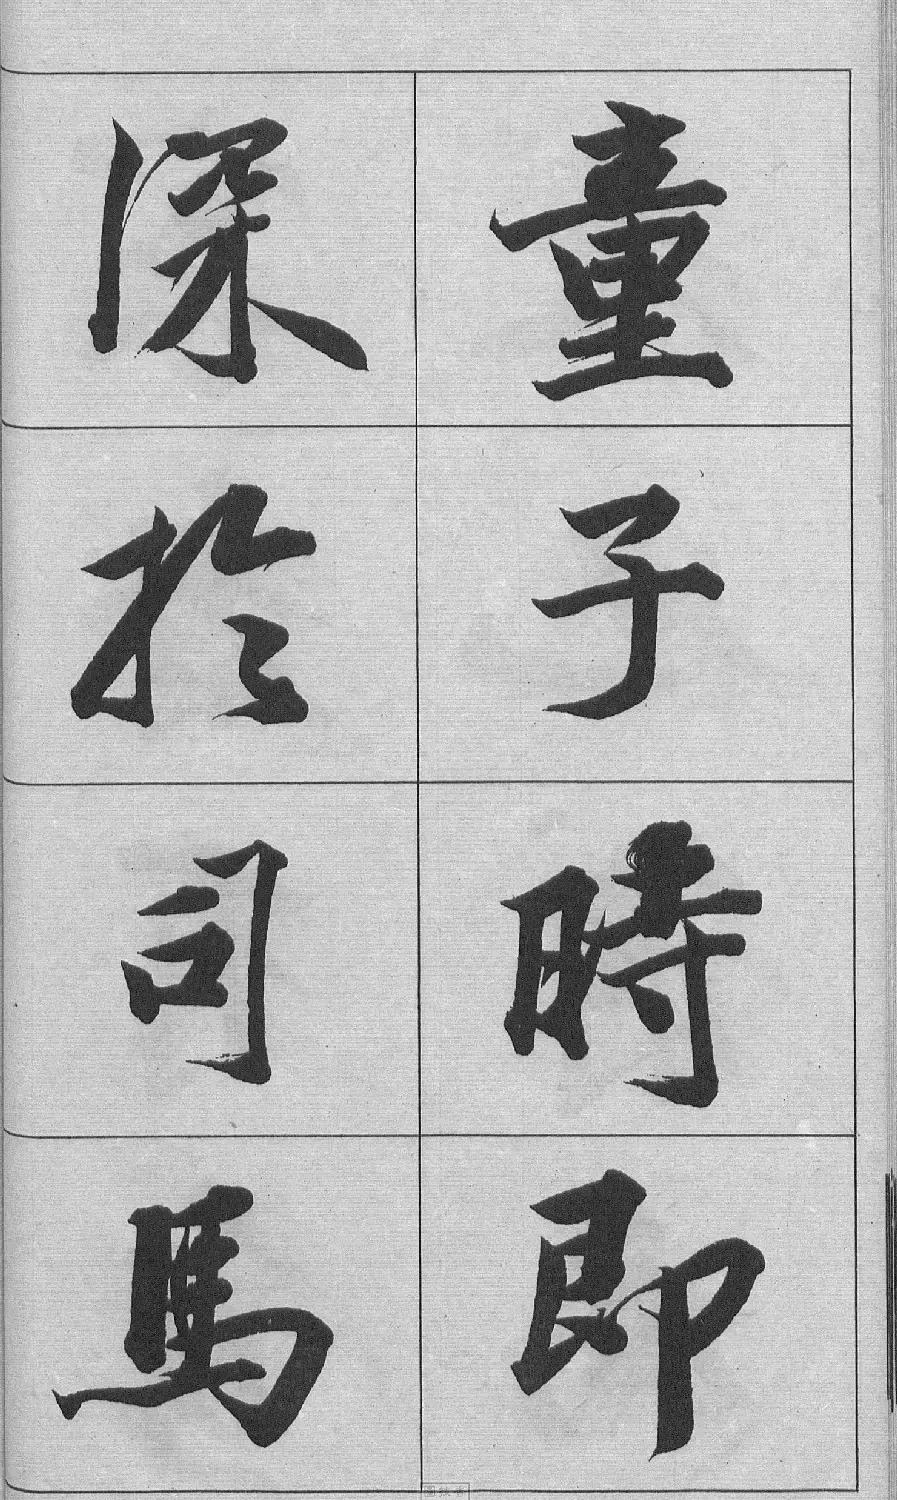 童子時即
深於司馬